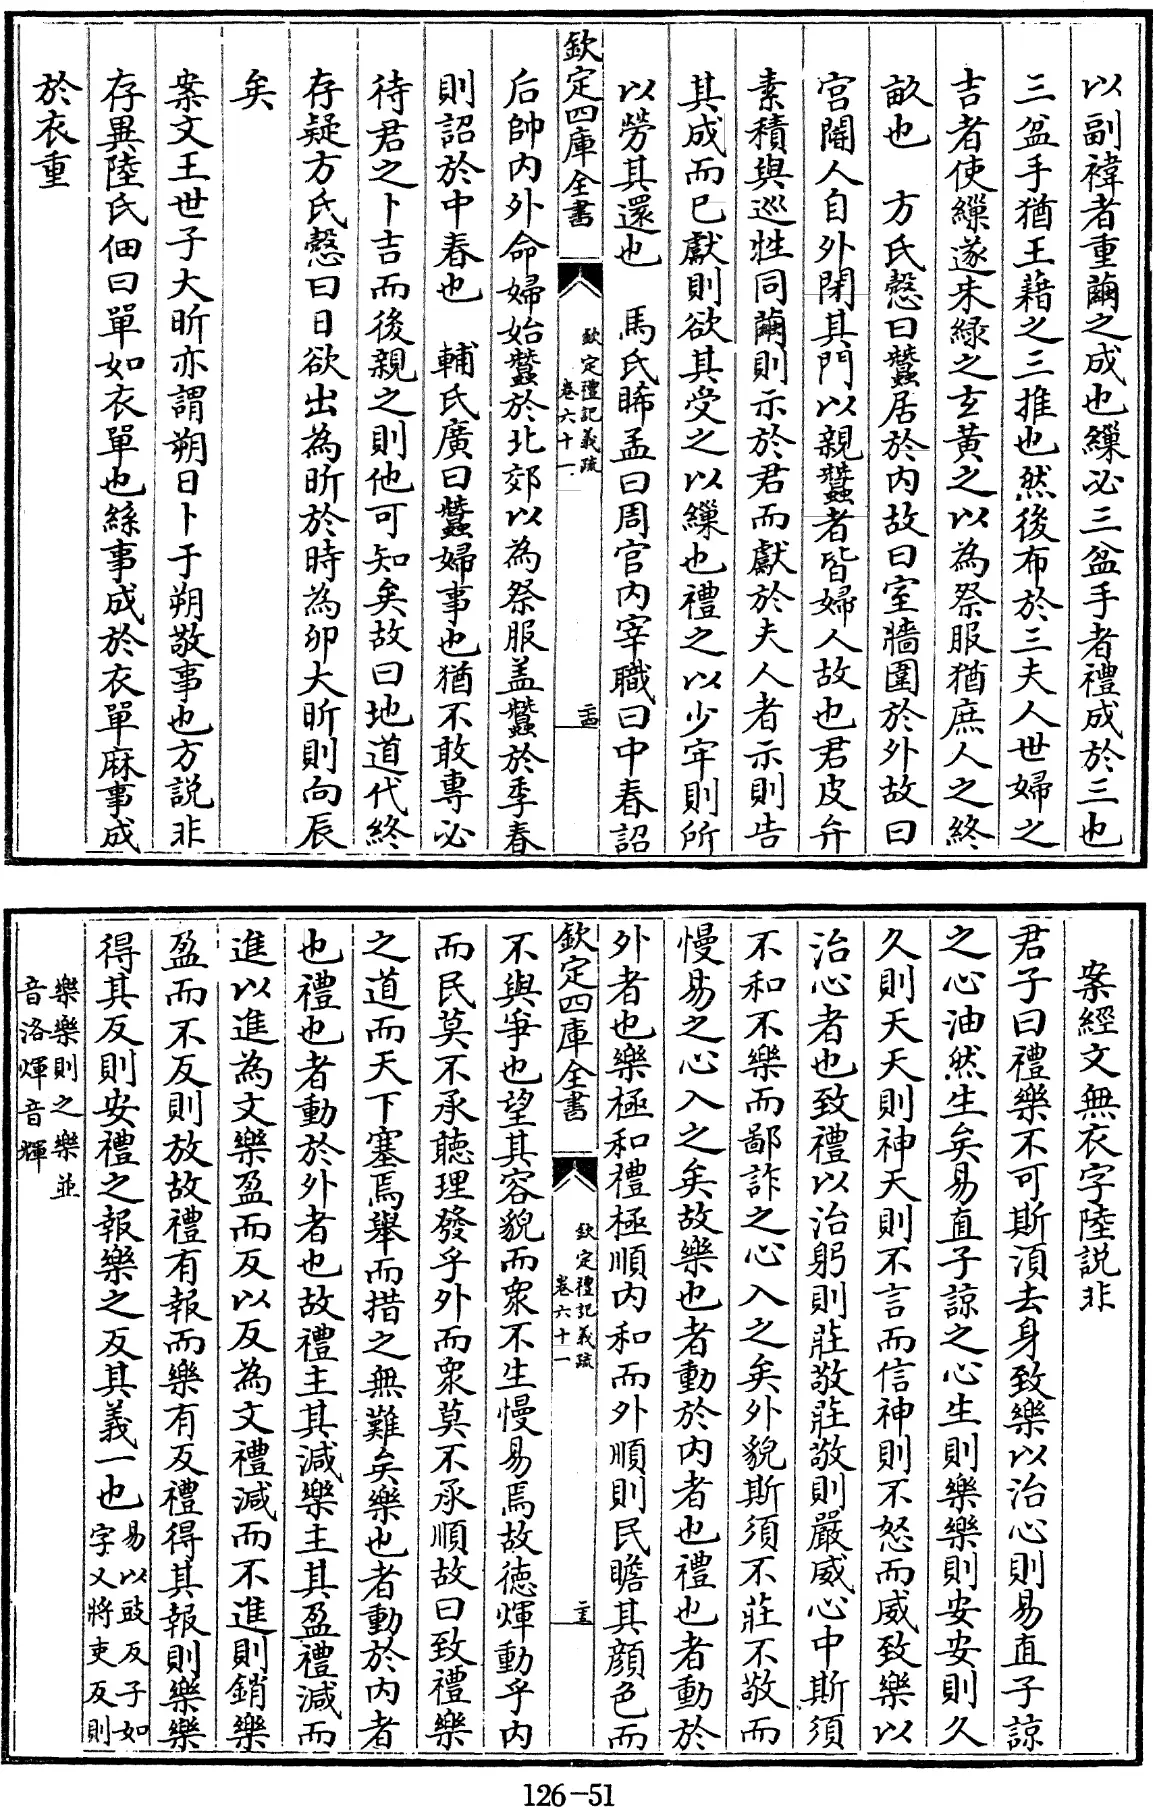 以副褘者重繭之成也繅必三盆手者禮成於三也
三盆手猶王藉之三推也然後布於三夫人世婦之
吉者使繅遂朱綠之玄黃之以為祭服猶庶人之終
畝也　方氏慤曰蠶居於內故曰室牆圍於外故曰
宮闈人自外閉其門以親蠶者皆婦人故也君皮弁
素積與巡牲同繭則示於君而獻於夫人者示則告
其成而已獻則欲其受之以繅也禮之以少牢則所
以勞其還也　馬氏晞孟曰周官內宰職曰中春詔
欽定四庫全書
欽定禮記義疏
卷六十一
二百
后帥內外命婦始蠶於北郊以為祭服盖蠶於季春
則詔於中春也　輔氏廣曰蠶婦事也猶不敢專必
待君之卜吉而後親之則他可知矣故曰地道代終
存疑方氏慤曰日欲出為昕於時為卯大昕則向辰
矣
案文王世子大昕亦謂朔日卜于朔敬事也方說非
存異陸氏佃曰單如衣單也絲事成於衣單麻事成
於衣重
案經文無衣字陸說非
君子曰禮樂不可斯湏去身致樂以治心則易直子諒
之心油然生矣易直子諒之心生則樂樂則安安則久
久則天天則神天則不言而信神則不怒而威致樂以
治心者也致禮以治躬則莊敬莊敬則嚴威心中斯須
不和不樂而鄙詐之心入之矣外貌斯須不莊不敬而
慢易之心入之矣故樂也者動於內者也禮也者動於
外者也樂極和禮極順內和而外順則民瞻其顏色而
欽定四庫全書
欽定禮記義疏
卷六十一
不與爭也望其容貌而衆不生慢易焉故德煇動乎內
而民莫不承聽理發乎外而衆莫不承順故曰致禮樂
之道而天下塞焉舉而措之無難矣樂也者動於內者
也禮也者動於外者也故禮主其減樂主其盈禮減而
進以進為文樂盈而反以反為文禮減而不進則銷樂
盈而不反則放故禮有報而樂有反禮得其報則樂樂
得其反則安禮之報樂之反其義一也易以豉反子如
字又將吏反則
樂樂則之樂並
音洛煇音輝
126-51